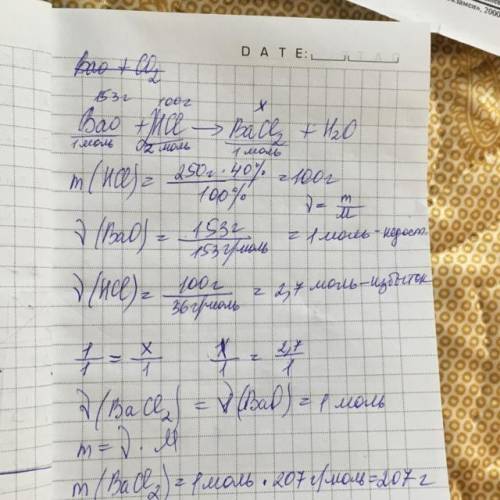 DATE:
BaO + CO2
153г 100г x
BaO + 2HCl → BaCl2 + H2O
1 моль 2 моль 1 моль
m(HCl) = 250г · 40% / 100% = 100г
ν = m / M
ν(BaO) = 153г / 153г/моль = 1 моль - недост.
ν(HCl) = 100г / 36г/моль = 2,7 моль - избыток
1/1 = x/1 1/1 = 2,7/1
ν(BaCl2) = ν(BaO) = 1 моль
m = ν · M
m(BaCl2) = 1 моль · 207 г/моль = 207 г